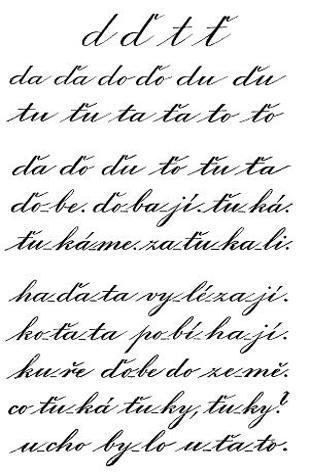 d ď t ť
da ďa do ďo du ďu
tu ťu ta ťa to ťo
ďa ďo ďu ťo ťu ťa
ďo-be. ďo-ba-jí. ťu-ká.
ťu-ká-me. za-ťu-ka-li.
ha-ďa-ta vy-lé-za-jí.
ko-ťa-ta po-bí-ha-jí.
ku-ře ďo-be do ze-mě.
co ťu-ká ťu-ky, ťu-ky?
u-cho by-lo u-ťa-to.